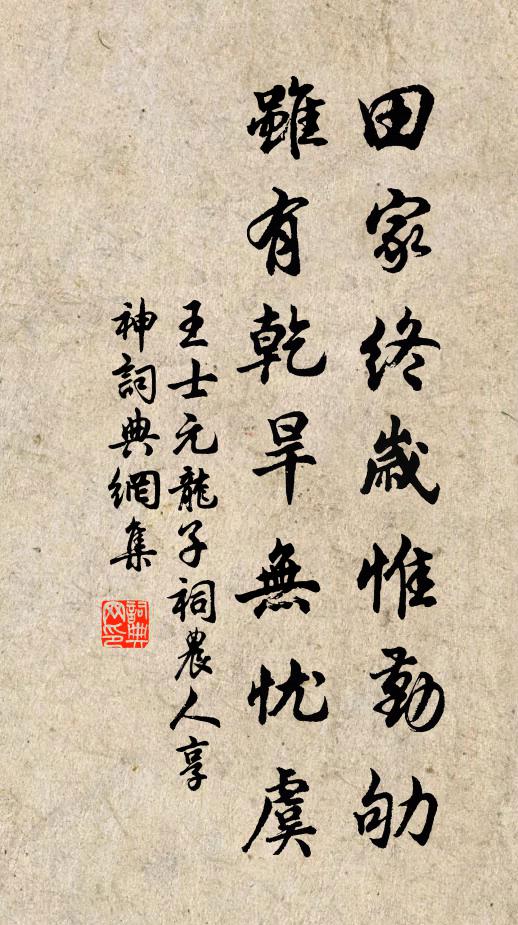 田家終歲惟勤劬
雖有乾旱無忧虞
王士元龍子祠農人享
神詞典網集
詞典
网印